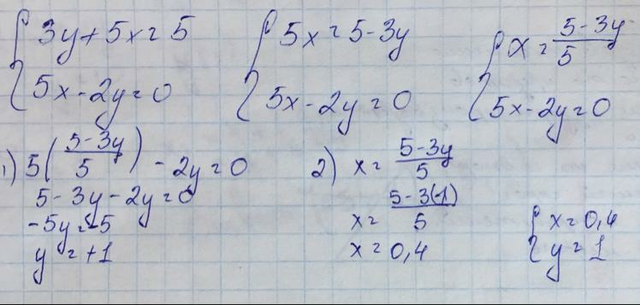 { 3y + 5x = 5
5x - 2y = 0
{ 5x = 5 - 3y
5x - 2y = 0
{ x = (5 - 3y)/5
5x - 2y = 0
1) 5((5 - 3y)/5) - 2y = 0
5 - 3y - 2y = 0
-5y = -5
y = +1
2) x = (5 - 3y)/5
x = (5 - 3(-1))/5
x = 0,4
{ x = 0,4
y = 1